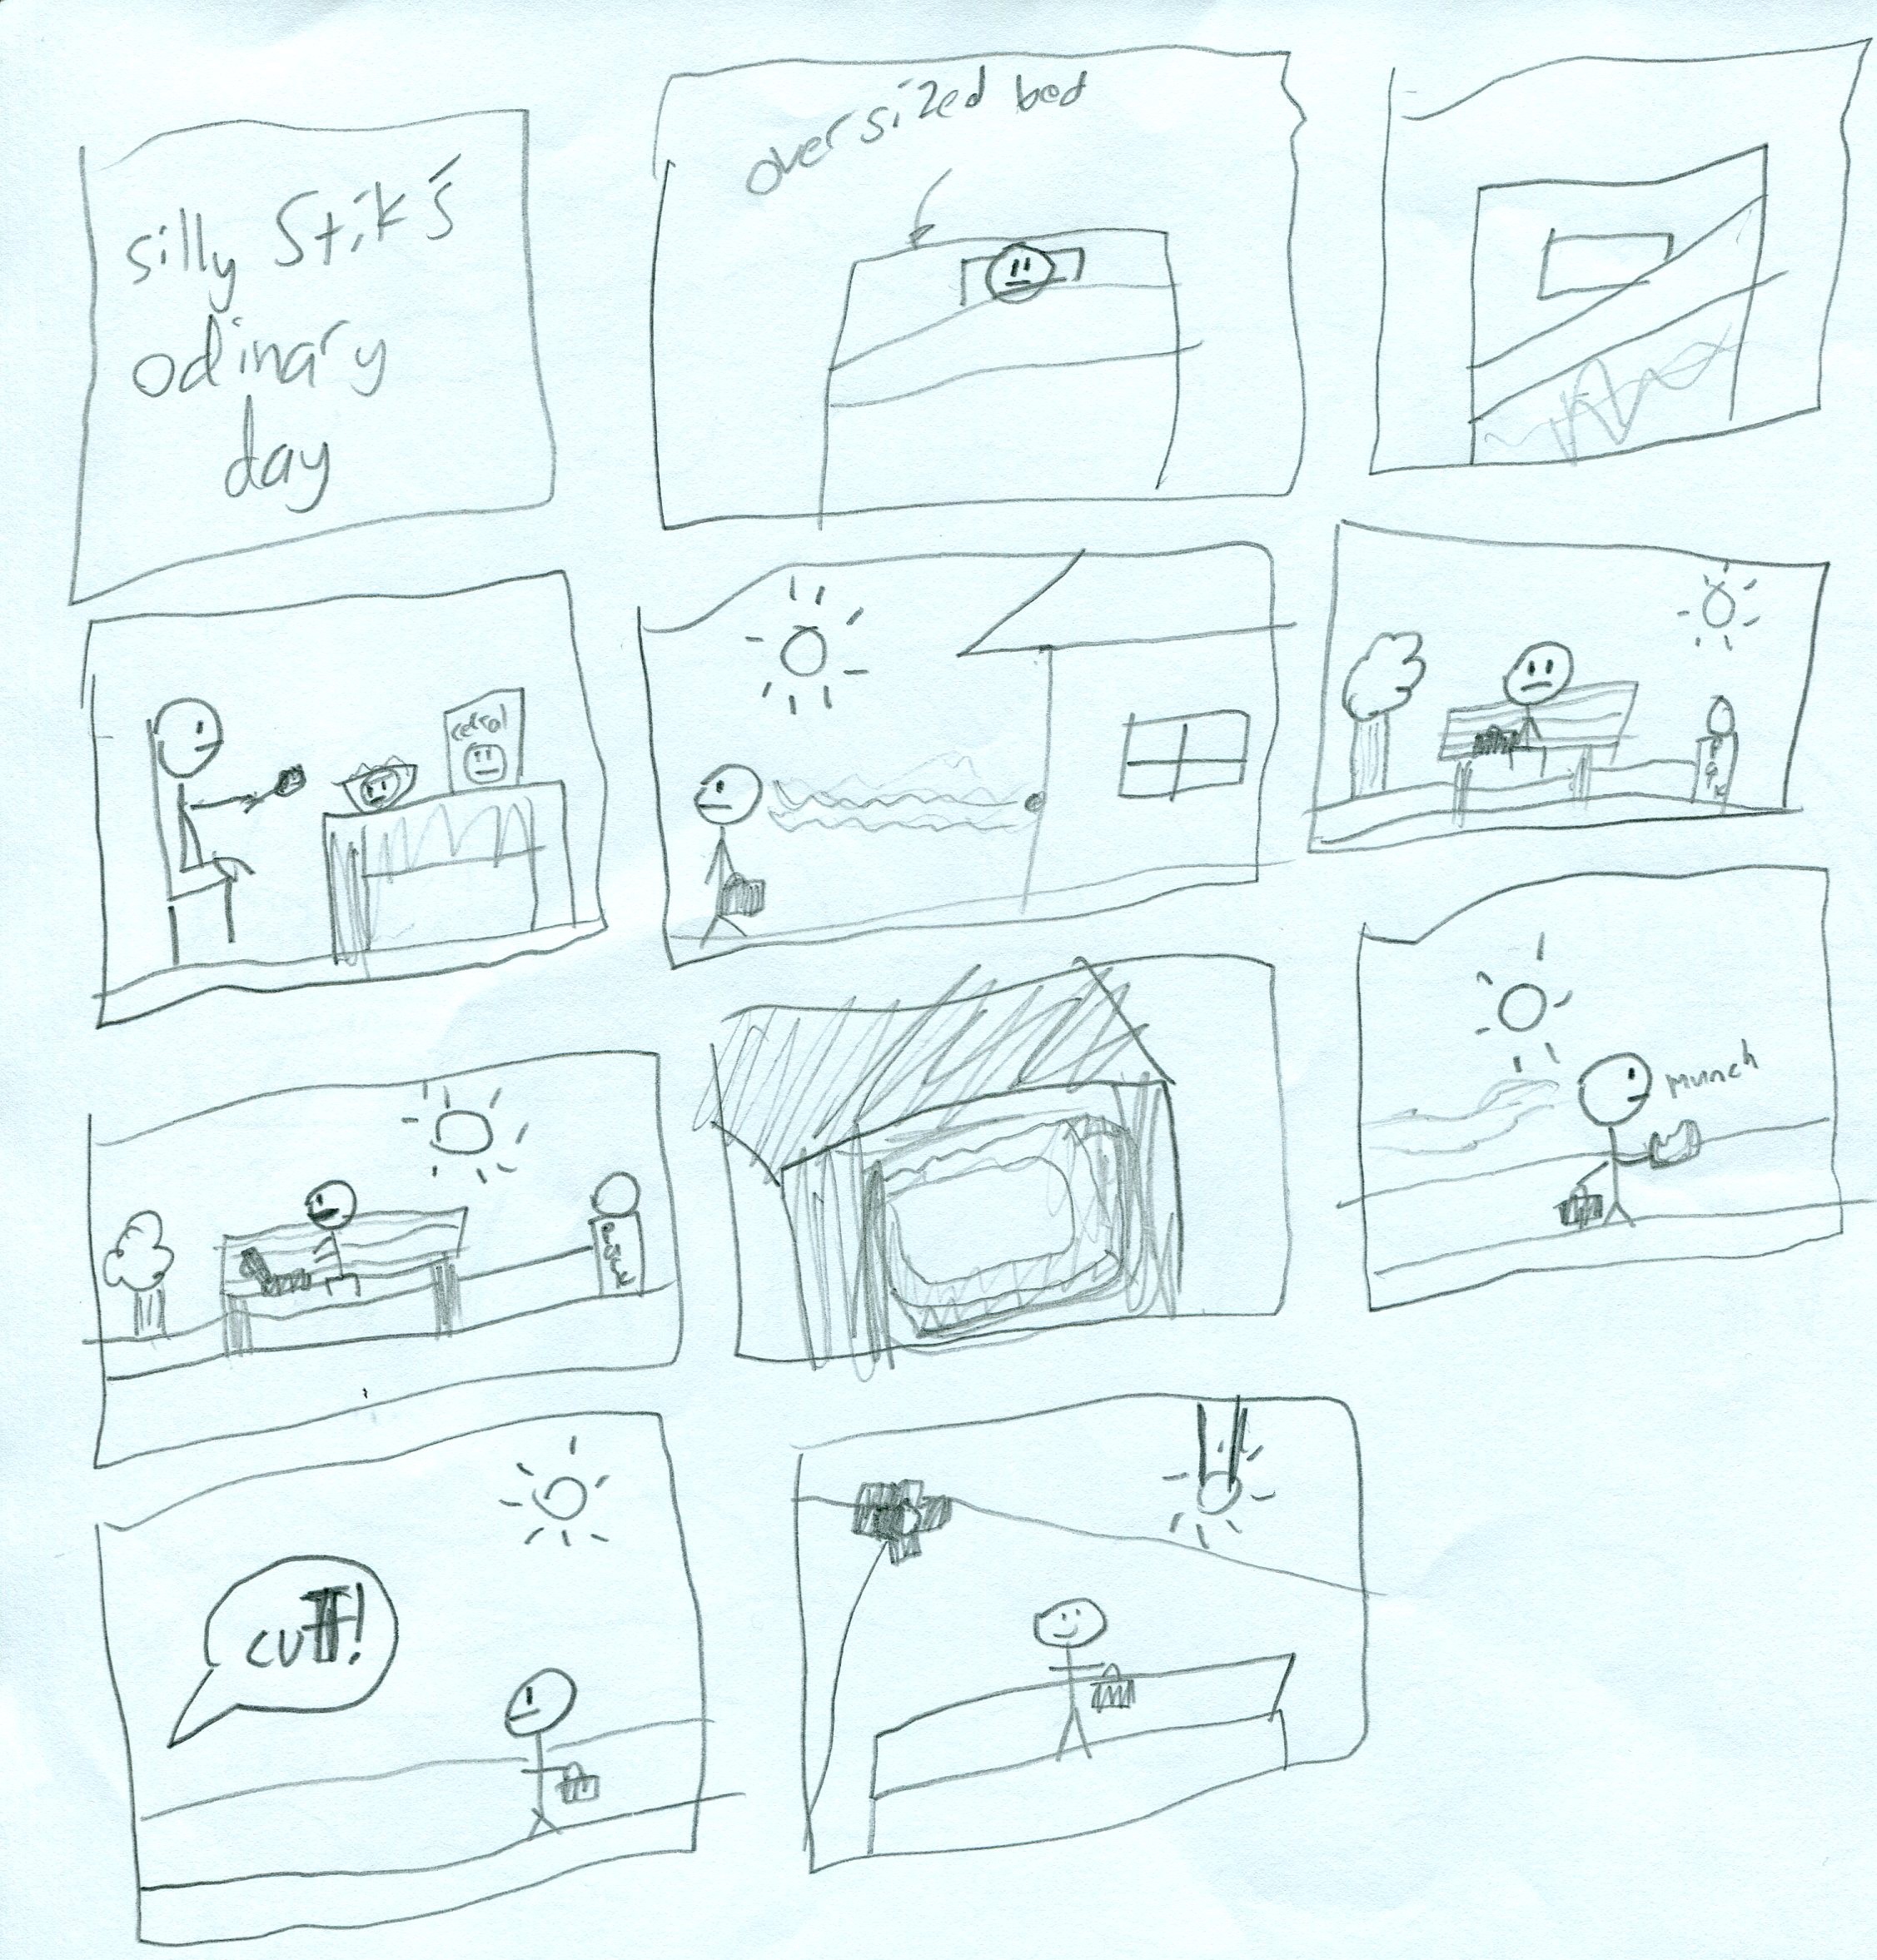 silly Stik's
odinary
day
oversized bed
cereal
Park
Park
munch
cut!